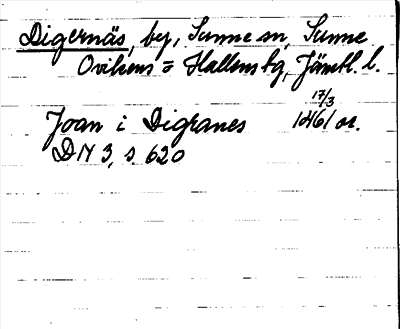 Digernäs, by, Sunne sn, Sunne
Ovikens = Hallens tg, Jämtl. l.
Joan i Digranes 17/3 1461 or.
DN 3, s. 620